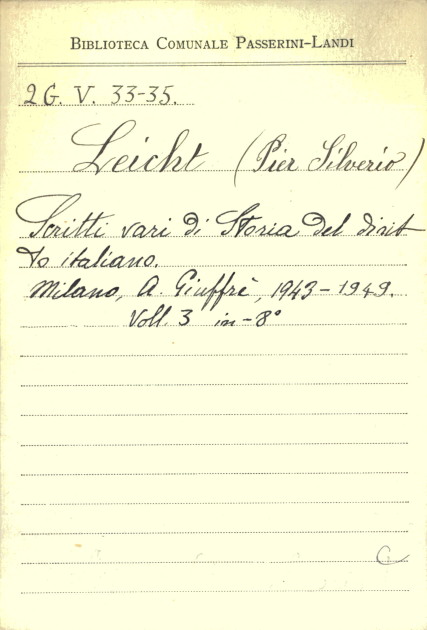 BIBLIOTECA COMUNALE PASSERINI-LANDI
2 G. V. 33-35.
Leicht (Pier Silverio)
Scritti vari di Storia del dirit-
to italiano.
Milano, A. Giuffrè, 1943-1949.
Voll. 3 in-8°
C